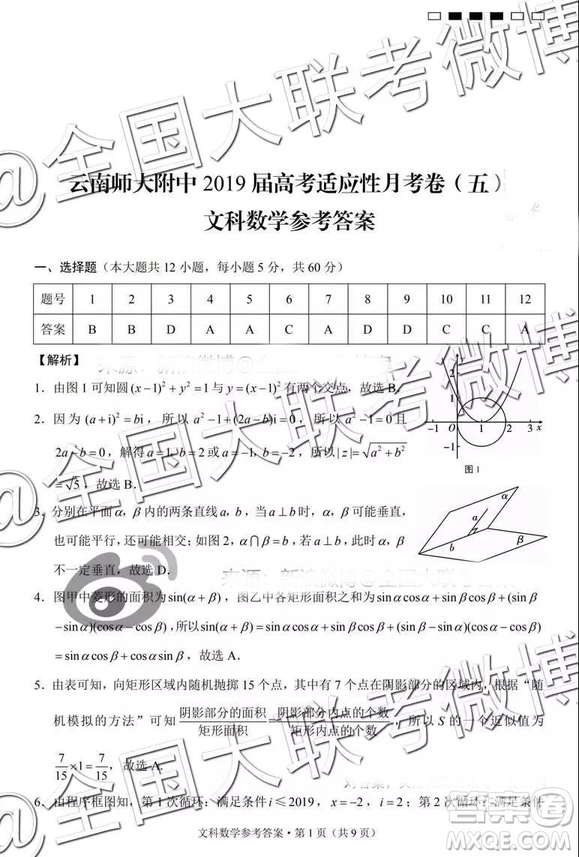 云南师大附中 2019 届高考适应性月考卷（五）
文科数学参考答案
一、选择题（本大题共 12 小题，每小题 5 分，共 60 分）
题号 1 2 3 4 5 6 7 8 9 10 11 12
答案 B B D A A C A D D C C A
【解析】
1．由图 1 可知圆 (x-1)²+y²=1 与 y=(x-1)² 有两个交点，故选 B．
2．因为 (a+i)²=bi，所以 a²-1+(2a-b)i=0，所以 a²-1=0 且
2a-b=0，解得 a=1，b=2 或 a=-1，b=-2，所以 |z|=√(a²+b²)
=√5，故选 B．
-1 O 1 2 3 x
-1
图 1
3．分别在平面 α，β 内的两条直线 a，b，当 a⊥b 时，α，β 可能垂直，
也可能平行，还可能相交；如图 2，α∩β=b，若 a⊥b，此时 α，β
不一定垂直，故选 D．
α a
b β
4．图甲中菱形的面积为 sin(α+β)，图乙中各矩形面积之和为 sinα cosα+sinβ cosβ+(sinβ
-sinα)(cosα-cosβ)，所以 sin(α+β)=sinα cosα+sinβ cosβ+(sinβ-sinα)(cosα-cosβ)
=sinα cosβ+cosα sinβ，故选 A．
5．由表可知，向矩形区域内随机抛掷 15 个点，其中有 7 个点在阴影部分的区域内，根据“随
机模拟的方法”可知 阴影部分的面积/矩形面积 = 阴影部分内点的个数/矩形内点的个数，所以 S 的一个近似值为
7/15×1=7/15，故选 A．
6．由程序框图知，第 1 次循环：满足条件 i≤2019，x=-2，i=2；第 2 次循环：满足条件
文科数学参考答案·第 1 页（共 9 页）
@全国大联考微博
答案圈
MXQE.COM